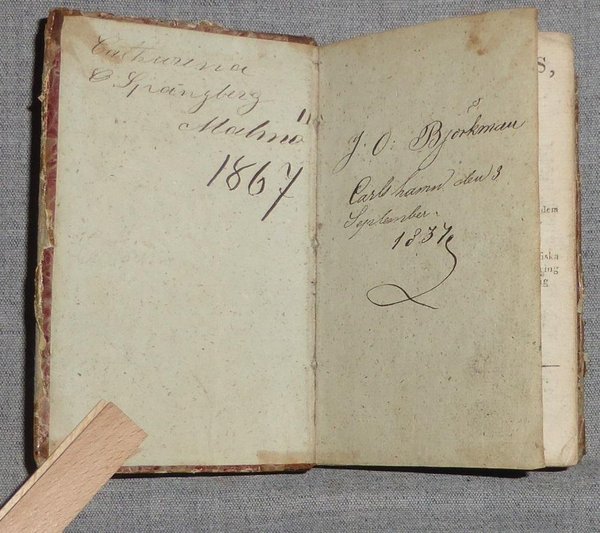 Catharina
C Spångberg
Malmö
1867
J. O. Björkman
Carlshamn den 3
September.
1837
S,
dem
iska
ging
ng